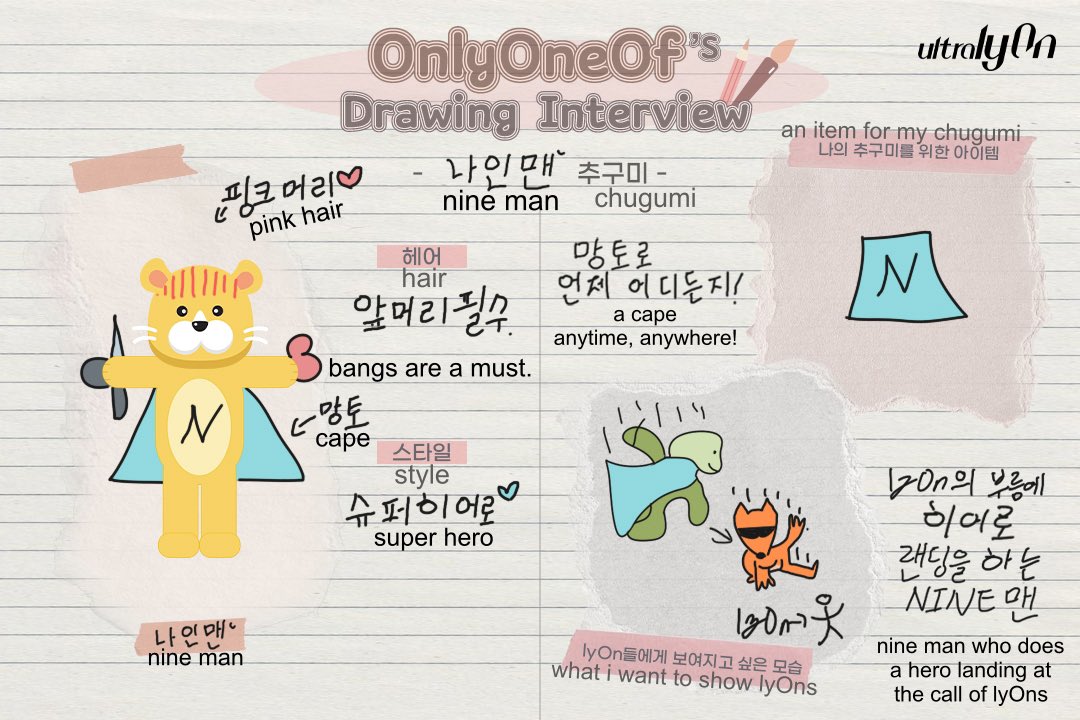 OnlyOneOf's
Drawing Interview
ultralyOn
핑크머리
pink hair
- 나인맨 추구미 -
nine man chugumi
헤어
hair
앞머리필수.
bangs are a must.
N
망토
cape
스타일
style
슈퍼히어로
super hero
나인맨
nine man
an item for my chugumi
나의 추구미를 위한 아이템
망토로
언제 어디든지!
a cape
anytime, anywhere!
N
lyOn
lyOn들에게 보여지고 싶은 모습
what i want to show lyOns
lyOn의 부름에
히어로
랜딩을 하는
NINE맨
nine man who does
a hero landing at
the call of lyOns